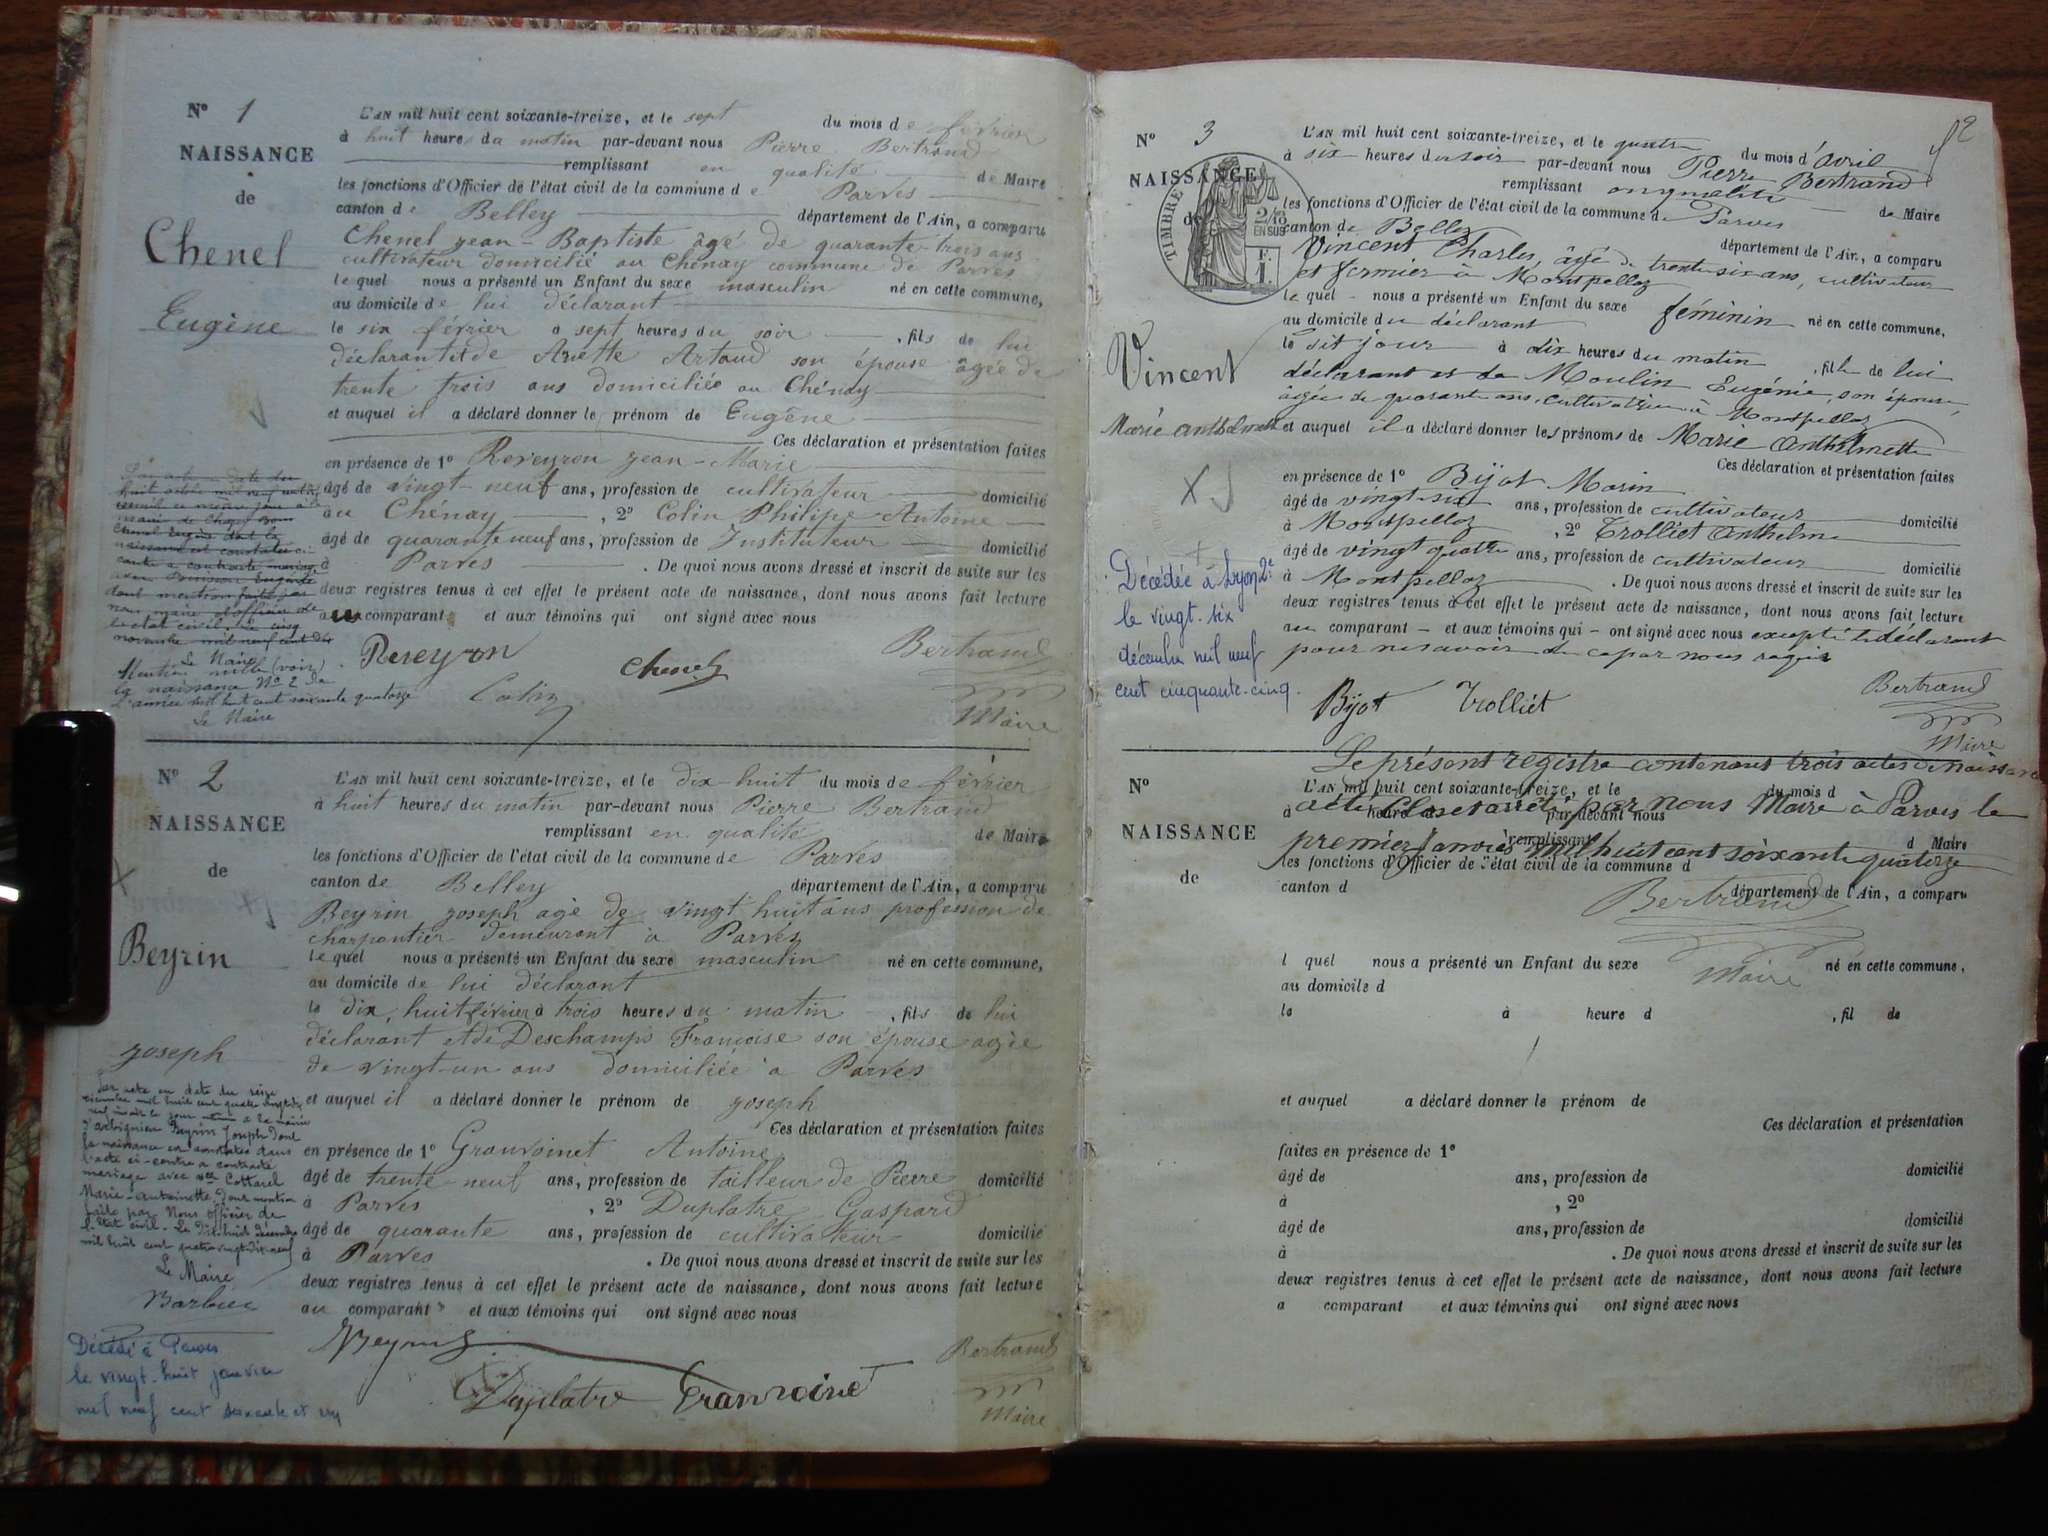 N° 1
NAISSANCE
de
Chenel
Eugène
L'AN mil huit cent soixante-treize, et le sept du mois de février
à huit heures du matin par-devant nous Pierre Bertrand
remplissant en qualité de Maire
les fonctions d'Officier de l'état civil de la commune de Parves
canton de Belley département de l'Ain, a comparu
Chenel jean-Baptiste âgé de quarante-trois ans
cultivateur domicilié au Chénay commune de Parves
lequel nous a présenté un Enfant du sexe masculin né en cette commune,
au domicile de lui déclarant
le six février à sept heures du soir , fils de lui
déclarant et de Anette Artaud son épouse âgée de
trente trois ans domiciliée au Chénay
et auquel il a déclaré donner le prénom de Eugène
Ces déclaration et présentation faites
en présence de 1° Reveyron jean-Marie
âgé de vingt-neuf ans, profession de cultivateur domicilié
au Chénay , 2° Colin Philipe Antoine
âgé de quarante neuf ans, profession de Instituteur domicilié
à Parves . De quoi nous avons dressé et inscrit de suite sur les
deux registres tenus à cet effet le présent acte de naissance, dont nous avons fait lecture
au comparant et aux témoins qui ont signé avec nous
Reveyron Chenel Bertrand
Colin Maire
Le Maire
Mention nulle (voir)
la naissance N° 2 de
l'année mil huit cent soixante quatorze
Le Maire
N° 2
NAISSANCE
de
Beyrin
joseph
L'AN mil huit cent soixante-treize, et le dix-huit du mois de février
à huit heures du matin par-devant nous Pierre Bertrand
remplissant en qualité de Maire
les fonctions d'Officier de l'état civil de la commune de Parves
canton de Belley département de l'Ain, a comparu
Beyrin joseph agé de vingt huit ans profession de
charpentier demeurant à Parves
lequel nous a présenté un Enfant du sexe masculin né en cette commune,
au domicile de lui déclarant
le dix huit février à trois heures du matin , fils de lui
déclarant et de Deschamps Françoise son épouse agée
de vingt-un ans domiciliée à Parves
et auquel il a déclaré donner le prénom de joseph
Ces déclaration et présentation faites
en présence de 1° Granvoinet Antoine
âgé de trente-neuf ans, profession de tailleur de Pierre domicilié
à Parves , 2° Duplatre Gaspard
âgé de quarante ans, profession de cultivateur domicilié
à Parves . De quoi nous avons dressé et inscrit de suite sur les
deux registres tenus à cet effet le présent acte de naissance, dont nous avons fait lecture
au comparant et aux témoins qui ont signé avec nous
Bertrand
Duplatre
Maire
Par acte en date du seize
décembre mil huit cent quatre vingt dix
à la mairie
Beyrin Joseph dont
la naissance est constatée dans
l'acte ci-contre a contracté
mariage avec Cottarel
Marie-Antoinette. Dont mention
faite par Nous officier de
l'état civil. Le dix huit décembre
mil huit cent quatre vingt dix neuf
Le Maire
Barbier
Décédé à Parves
le vingt-huit janvier
mil neuf cent soixante et un
2
N° 3
NAISSANCE
de
TIMBRE
2/10 EN SUS
F. 1
Vincent
Marie Anthelmette
L'AN mil huit cent soixante-treize, et le quatre du mois d'avril
à six heures du soir par-devant nous Pierre Bertrand
remplissant en qualité de Maire
les fonctions d'Officier de l'état civil de la commune de Parves
canton de Belley département de l'Ain, a comparu
Vincent Charles, âgé de trente six ans, cultivateur
et fermier à Montpellaz
lequel nous a présenté un Enfant du sexe féminin né en cette commune,
au domicile du déclarant
le dit jour à dix heures du matin , fille de lui
déclarant et de Moulin Eugénie, son épouse,
âgée de quarante ans, cultivatrice à Montpellaz
et auquel il a déclaré donner les prénoms de Marie Anthelmette
Ces déclaration et présentation faites
en présence de 1° Bijot Marin
âgé de vingt-six ans, profession de cultivateur domicilié
à Montpellaz , 2° Trolliet Anthelme
âgé de vingt quatre ans, profession de cultivateur domicilié
à Montpellaz . De quoi nous avons dressé et inscrit de suite sur les
deux registres tenus à cet effet le présent acte de naissance, dont nous avons fait lecture
au comparant – et aux témoins qui – ont signé avec nous excepté le déclarant
pour ne savoir de ce par nous requis
Bijot Trolliet Bertrand
Maire
Décédée à Lyon 2e
le vingt-six
décembre mil neuf
cent cinquante-cinq.
Le présent registre contenant trois actes de naissance
a été clos et arrêté par nous Maire à Parves le
premier janvier mil huit cent soixante quatorze
Bertrand
Maire
N°
NAISSANCE
de
L'AN mil huit cent soixante-treize, et le du mois d
à heure d par-devant nous
remplissant d Maire
les fonctions d'Officier de l'état civil de la commune d
canton d département de l'Ain, a comparu
l quel nous a présenté un Enfant du sexe né en cette commune,
au domicile d
le à heure d , fil de
et auquel a déclaré donner le prénom de
Ces déclaration et présentation
faites en présence de 1°
âgé de ans, profession de domicilié
à , 2°
âgé de ans, profession de domicilié
à . De quoi nous avons dressé et inscrit de suite sur les
deux registres tenus à cet effet le présent acte de naissance, dont nous avons fait lecture
a comparant et aux témoins qui ont signé avec nous